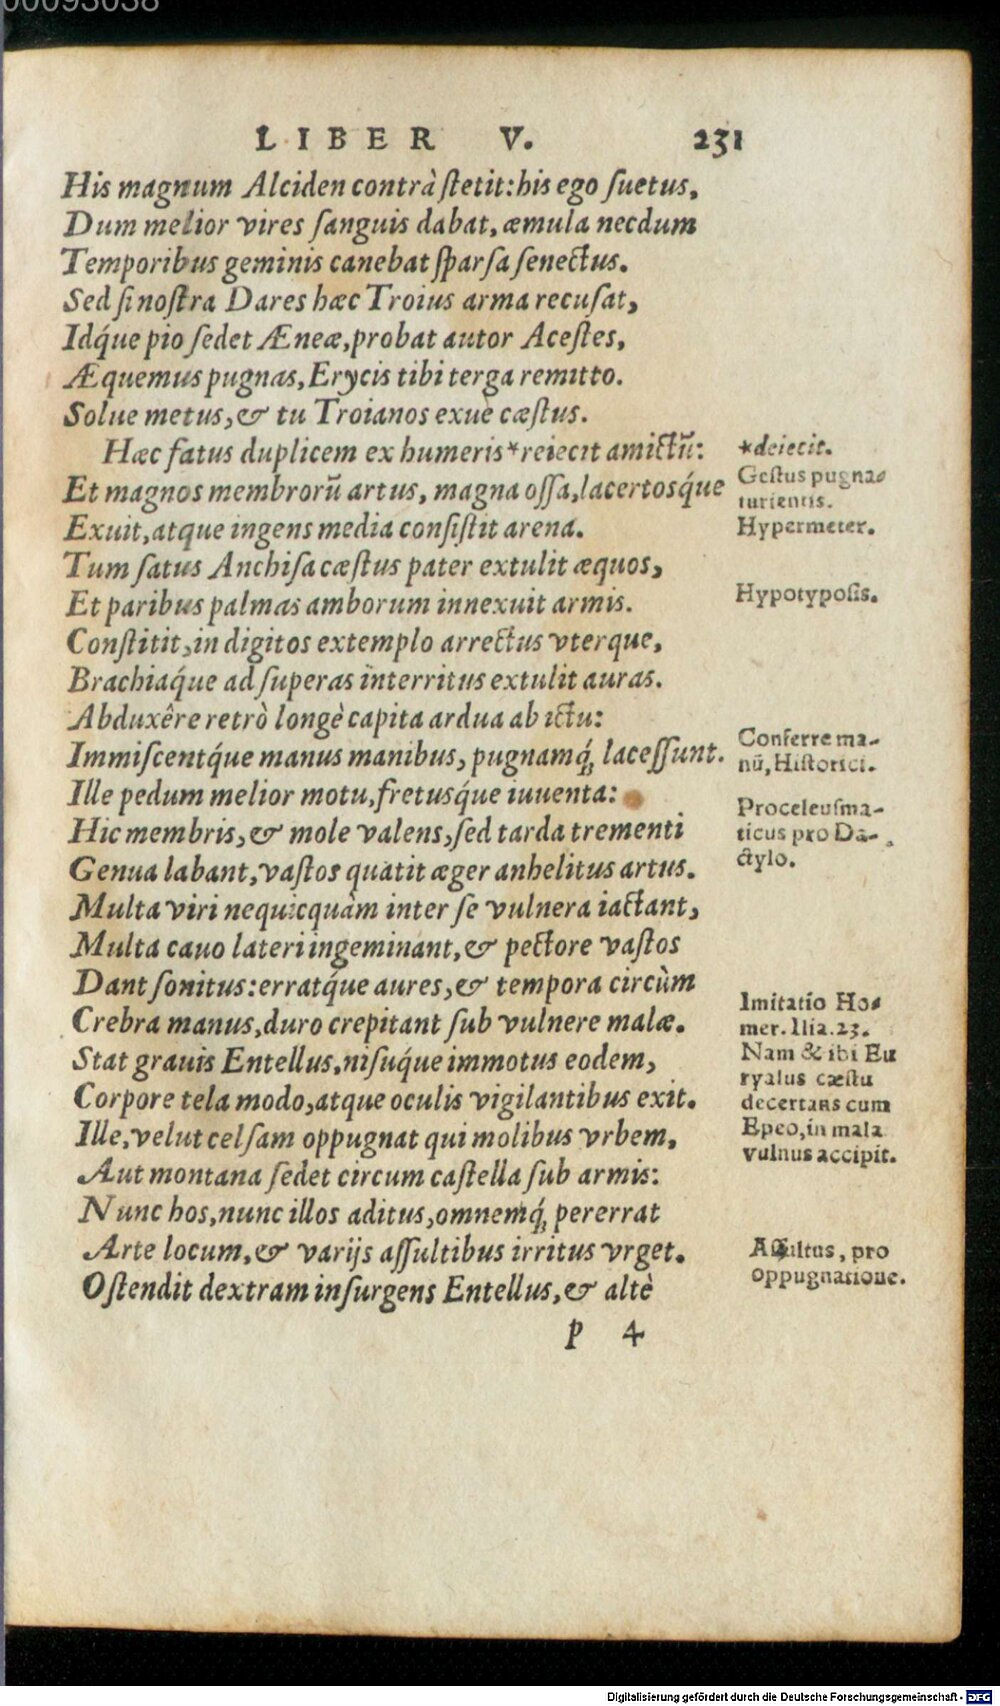 00093038
LIBER V. 231
His magnum Alciden contrà ſtetit: his ego ſuetus,
Dum melior vires ſanguis dabat, æmula necdum
Temporibus geminis canebat ſparſa ſenectus.
Sed ſi noſtra Dares hæc Troius arma recuſat,
Idq́ue pio ſedet Æneæ, probat autor Aceſtes,
Æquemus pugnas, Erycis tibi terga remitto.
Solue metus, & tu Troianos exue cæſtus.
Hæc fatus duplicem ex humeris *reiecit amictū:
Et magnos membrorū artus, magna oſſa, lacertosq́ue
Exuit, atque ingens media conſiſtit arena.
Tum ſatus Anchiſa cæſtus pater extulit æquos,
Et paribus palmas amborum innexuit armis.
Conſtitit, in digitos extemplo arrectus vterque,
Brachiaq́ue ad ſuperas interritus extulit auras.
Abduxêre retrò longè capita ardua ab ictu:
Immiſcentq́ue manus manibus, pugnamq́; laceſſunt.
Ille pedum melior motu, fretusq́ue iuuenta:
Hic membris, & mole valens, ſed tarda trementi
Genua labant, vaſtos quatit æger anhelitus artus.
Multa viri nequicquàm inter ſe vulnera iactant,
Multa cauo lateri ingeminant, & pectore vaſtos
Dant ſonitus: erratq́ue aures, & tempora circùm
Crebra manus, duro crepitant ſub vulnere malæ.
Stat grauis Entellus, niſuq́ue immotus eodem,
Corpore tela modo, atque oculis vigilantibus exit.
Ille, velut celſam oppugnat qui molibus vrbem,
Aut montana ſedet circum caſtella ſub armis:
Nunc hos, nunc illos aditus, omnemq́; pererrat
Arte locum, & varijs aſſultibus irritus vrget.
Oſtendit dextram inſurgens Entellus, & altè
p 4
*deiecit.
Geſtus pugna-
turientis.
Hypermeter.
Hypotypoſis.
Conferre ma-
nū, Hiſtorici.
Proceleuſma-
ticus pro Da-
ctylo.
Imitatio Ho-
mer. Ilia. 23.
Nam & ibi Eu
ryalus cæſtu
decertans cum
Epeo, in mala
vulnus accipit.
Aſſultus, pro
oppugnatione.
Digitalisierung gefördert durch die Deutsche Forschungsgemeinschaft - DFG